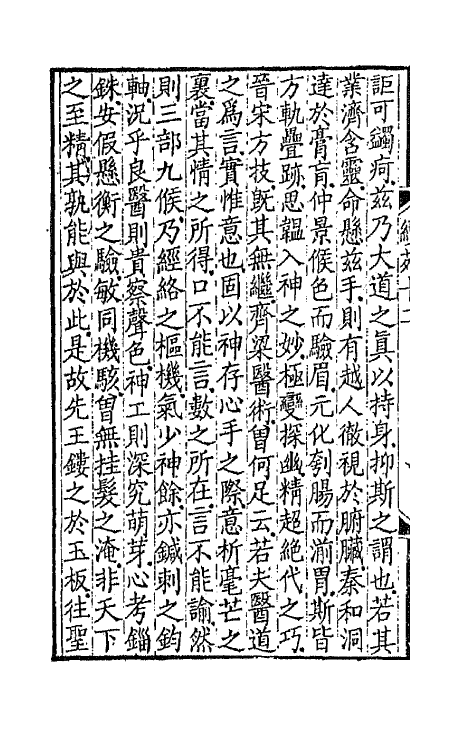 詎可蠲疴茲乃大道之真以持身抑斯之謂也若其
業濟含靈命懸茲手則有越人徹視於腑臟秦和洞
達於膏肓仲景候色而驗眉元化刳腸而湔胃斯皆
方軌疊跡思韞入神之妙極變探幽精超絶代之巧
晉宋方技既其無繼齊梁醫術曽何足云若夫醫道
之爲言實惟意也固以神存心手之際意析毫芒之
裏當其情之所得口不能言數之所在言不能諭然
則三部九候乃經絡之樞機氣少神餘亦鍼刺之鈞
軸況乎良醫則貴察聲色神工則深究萌芽心考錙
銖安假懸衡之驗敏同機駭曽無挂髮之淹非天下
之至精其孰能與於此是故先王鏤之於玉板往聖